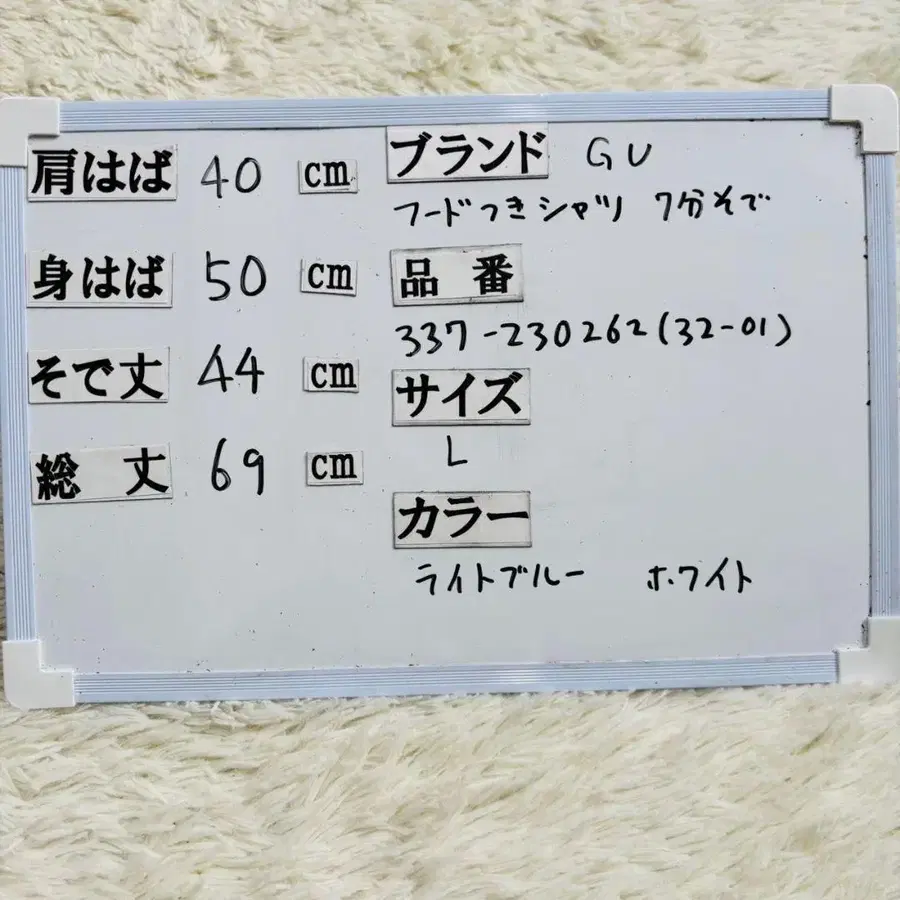 肩はば 40 cm
身はば 50 cm
そで丈 44 cm
総丈 69 cm
ブランド GU
フードつきシャツ 7分そで
品番
337-230262(32-01)
サイズ
L
カラー
ライトブルー ホワイト